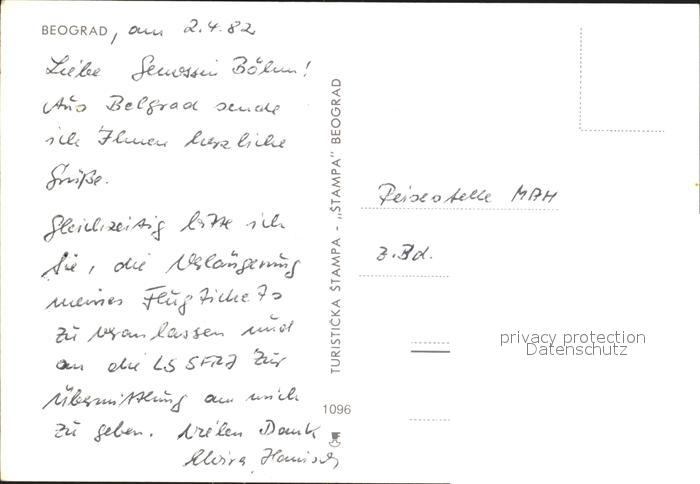 BEOGRAD, am 2.4.82
Liebe Genossin Böhm!
Aus Belgrad sende
ich Ihnen herzliche
Grüße.
Gleichzeitig bitte ich
Sie, die Verlängerung
meines Flugtickets
zu veranlassen und
an die LS SFRJ zur
Übermittlung an mich
zu geben. Vielen Dank
Elvira Hanisch
TURISTIČKA ŠTAMPA - „ŠTAMPA" BEOGRAD
1096
Reisestelle MAH
z. Bd.
privacy protection
Datenschutz